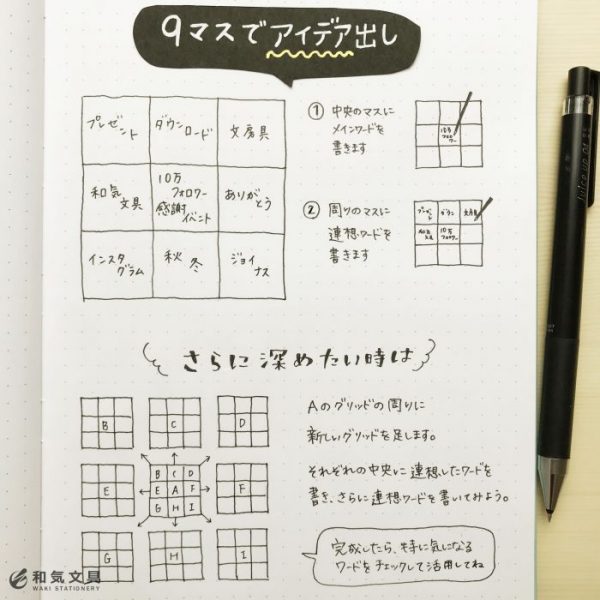 9マスでアイデア出し
プレゼント
ダウンロード
文房具
和気
文具
10万
フォロワー
感謝
イベント
ありがとう
インスタ
グラム
秋 冬
ジョイ
ナス
① 中央のマスに
メインワードを
書きます
10万
フォロワー
② 周りのマスに
連想ワードを
書きます
プレゼント
ダウン
文房具
和気
文具
10万
フォロワー
さらに深めたい時は
B
C
D
E
B C D
E A F
G H I
F
G
H
I
Aのグリッドの周りに
新しいグリッドを足します。
それぞれの中央に連想したワードを
書き、さらに連想ワードを書いてみよう。
完成したら、特に気になる
ワードをチェックして活用してね
和気文具
WAKI STATIONERY